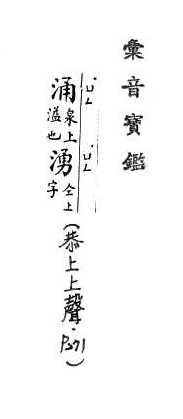 彙音寶鑑
涌泉上溢也湧仝上字(恭上上聲·)